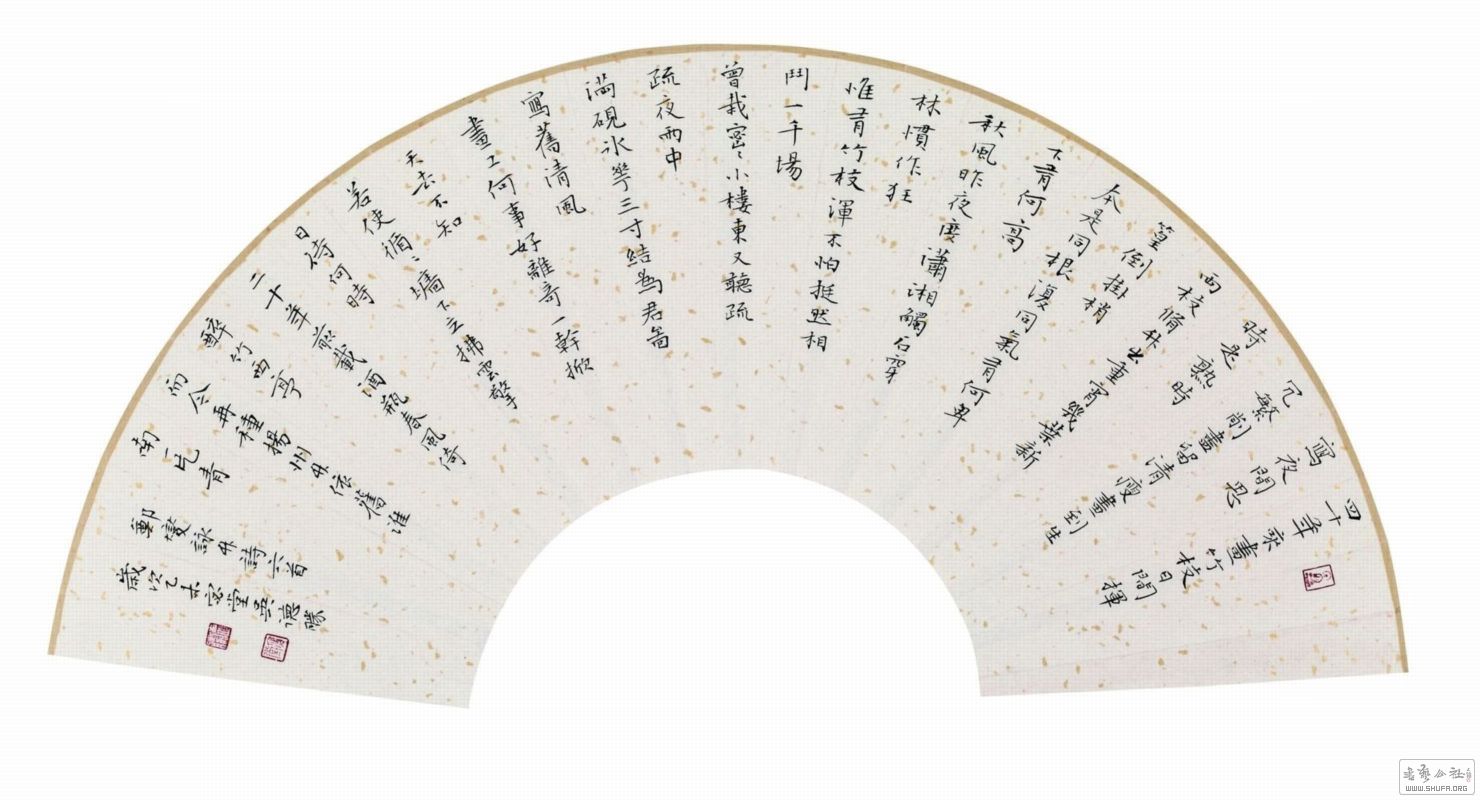 四十年來畫竹枝日間揮
寫夜間思
冗繁削盡留清瘦畫到生
時是熟時
兩枝脩竹出重霄幾葉新
篁倒掛梢
本是同根復同氣有何卑
下有何高
秋風昨夜度瀟湘觸石穿
林慣作狂
惟有竹枝渾不怕挺然相
鬥一千場
曾栽密〻小樓東又聽疏
疏夜雨中
滿硯冰華三寸結為君圖
寫舊清風
畫工何事好離奇一幹掀
天去不知
若使循〻墻下立拂雲擎
日待何時
二十年前載酒瓶春風倚
醉竹西亭
而今再種揚州竹依舊淮
南一片青
鄭燮詠竹詩六首
歲次乙未密堂吳德勝
WWW.SHUFA.ORG